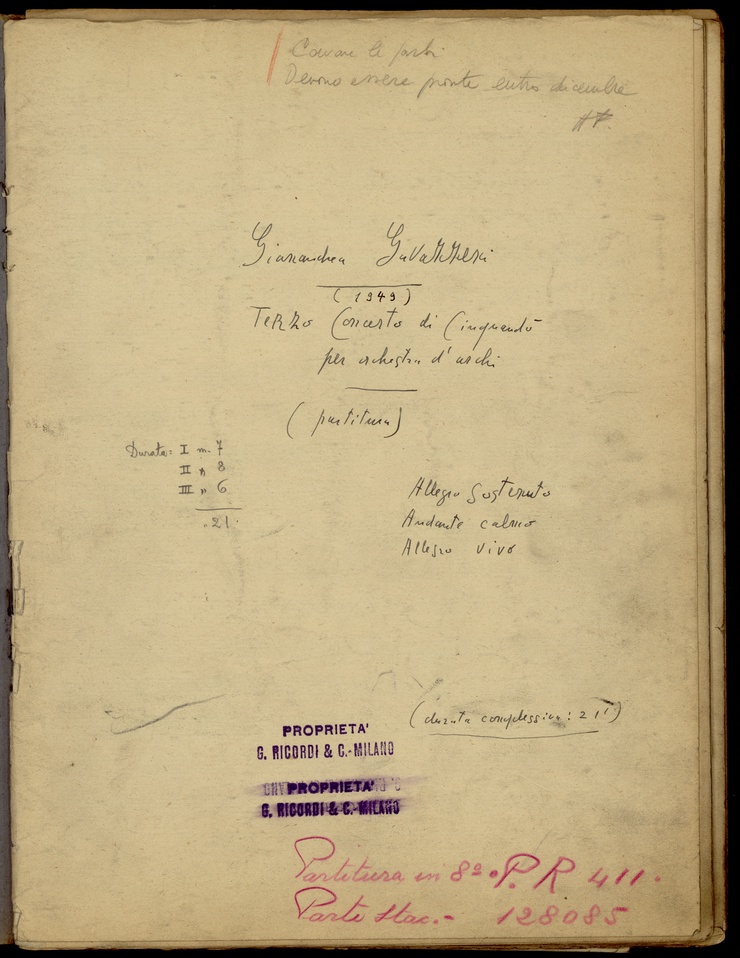 Cavare le parti
Devono essere pronte entro dicembre
Gianandrea Gavazzeni
(1949)
Terzo Concerto di Cinquandò
per orchestra d'archi
(partitura)
Durata: I m. 7
II " 8
III " 6
21
Allegro sostenuto
Andante calmo
Allegro vivo
(durata complessiva: 21')
PROPRIETA'
G. RICORDI & C.-MILANO
PROPRIETA'
G. RICORDI & C.-MILANO
Partitura in 8º. P. R 411.
Parte stac.- 128085